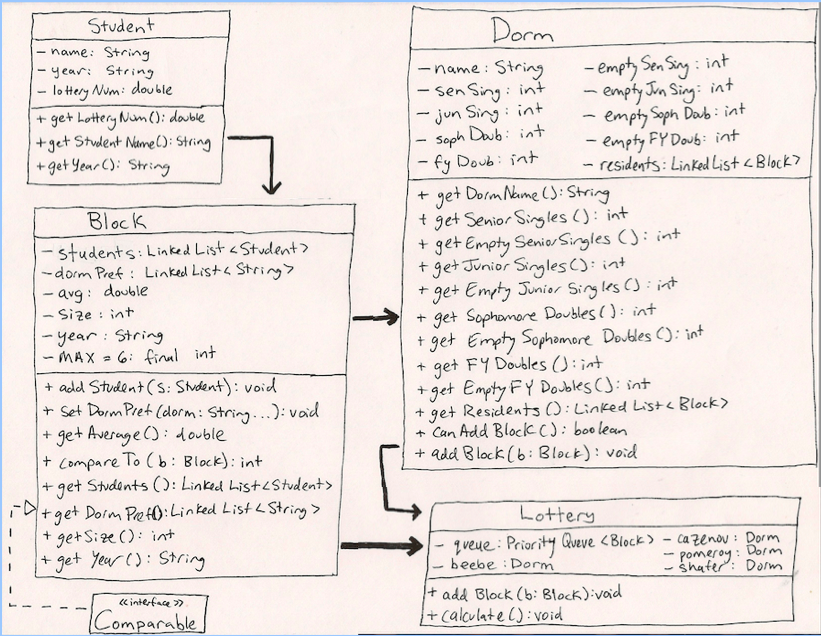 Student
- name: String
- year: String
- lotteryNum: double
+ getLotteryNum(): double
+ getStudentName(): String
+ getYear(): String
Block
- students: LinkedList<Student>
- dormPref: LinkedList<String>
- avg: double
- size: int
- year: String
- MAX = 6: final int
+ addStudent(s: Student): void
+ setDormPref(dorm: String...): void
+ getAverage(): double
+ compareTo(b: Block): int
+ getStudents(): LinkedList<Student>
+ getDormPref(): LinkedList<String>
+ getSize(): int
+ getYear(): String
<<interface>>
Comparable
Dorm
- name: String
- senSing: int
- junSing: int
- sophDoub: int
- fyDoub: int
- emptySenSing: int
- emptyJunSing: int
- emptySophDoub: int
- emptyFYDoub: int
- residents: LinkedList<Block>
+ getDormName(): String
+ getSeniorSingles(): int
+ getEmptySeniorSingles(): int
+ getJuniorSingles(): int
+ getEmptyJuniorSingles(): int
+ getSophomoreDoubles(): int
+ getEmptySophomoreDoubles(): int
+ getFYDoubles(): int
+ getEmptyFYDoubles(): int
+ getResidents(): LinkedList<Block>
+ canAddBlock(): boolean
+ addBlock(b: Block): void
Lottery
- queue: PriorityQueue<Block>
- beebe: Dorm
- cazenov: Dorm
- pomeroy: Dorm
- shafer: Dorm
+ addBlock(b: Block): void
+ calculate(): void